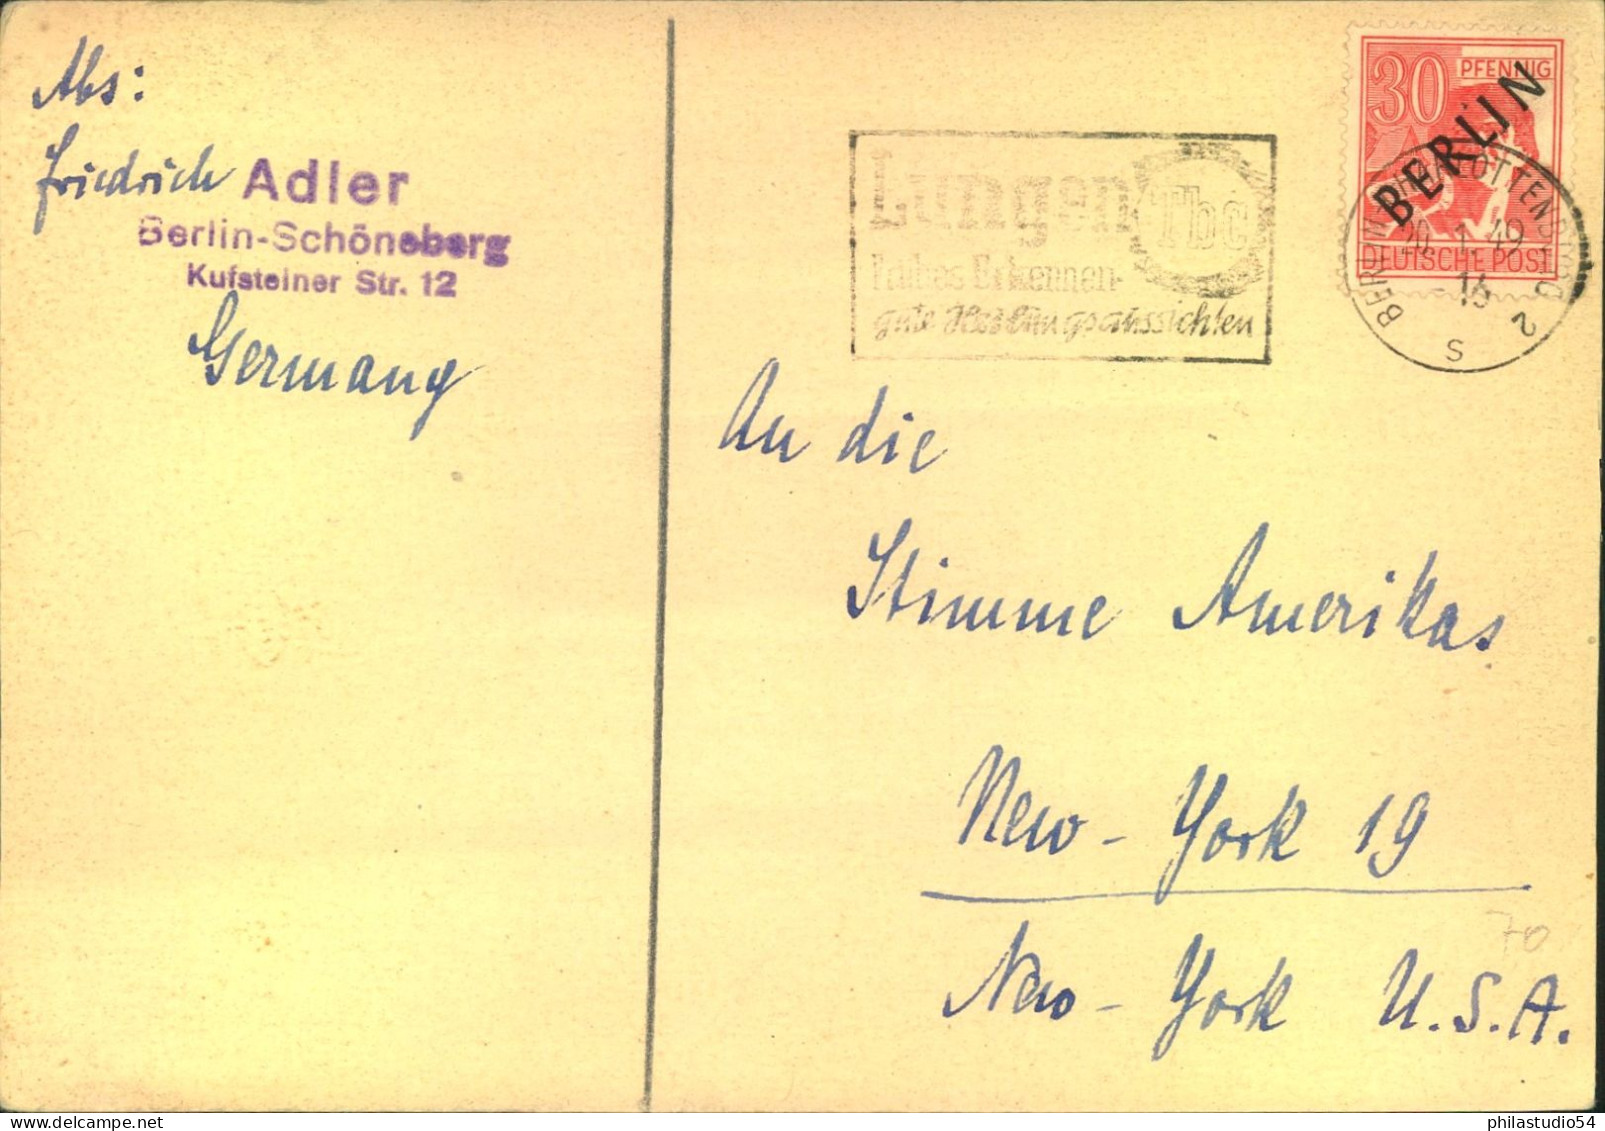 Abs:
Friedrich Adler
Berlin-Schöneberg
Kufsteiner Str. 12
Germany
Lungen Tbc
Frühes Erkennen-
gute Heilungsaussichten
30 PFENNIG
BERLIN
DEUTSCHE POST
BERLIN-CHARLOTTENBURG 2
20. 1. 49
16
S
An die
Stimme Amerikas
New-York 19
New-York U.S.A.
70
philastudio54